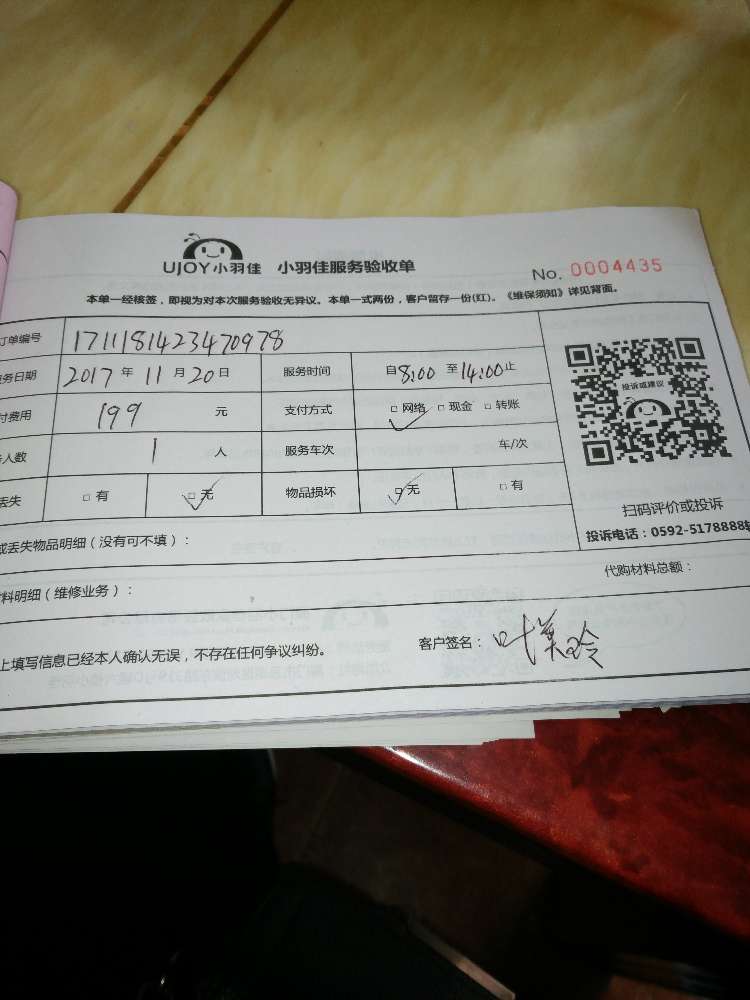 UJOY小羽佳 小羽佳服务验收单 No. 0004435
本单一经核签，即视为对本次服务验收无异议。本单一式两份，客户留存一份(红)。《维保须知》详见背面。
订单编号 1711181423470978
务日期 2017年11月20日 服务时间 自8:00至14:00止
付费用 199 元 支付方式 □网络 □现金 □转账
人数 1 人 服务车次 车/次
丢失 □有 □无 物品损坏 □无 □有
投诉或建议
扫码评价或投诉
投诉电话：0592-5178888转
或丢失物品明细（没有可不填）：
料明细（维修业务）： 代购材料总额：
上填写信息已经本人确认无误，不存在任何争议纠纷。 客户签名：叶美玲